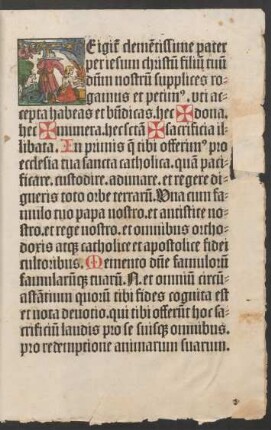 Eigit᷒ clemẽtissime pater
per iesum christũ filiũ tuũ
dñm nostrũ supplices ro-
gamus et petimꝰ. vti ac-
cepta habeas et bñdicas. hec ✠ dona.
hec ✠ munera. hec sctã ✠ sacrificia il-
libata. In primis q̃ tibi offerimꝰ pro
ecclesia tua sancta catholica. quã paci-
ficare. custodire. adunare. et regere di-
gneris toto orbe terrarũ. Vna cum fa-
mulo tuo papa nostro. et antistite no-
stro. et rege nostro. et omnibus ortho-
doxis atqꝫ catholice et apostolice fidei
cultoribus. Memento dñe famulorũ
famularũqꝫ tuarũ. N. et omniũ circũ-
astãtium quorũ tibi fides cognita est
et nota deuotio. qui tibi offerũt hoc sa-
crificiũ laudis pro se suisqꝫ omnibus.
pro redemptione animarum suarum.